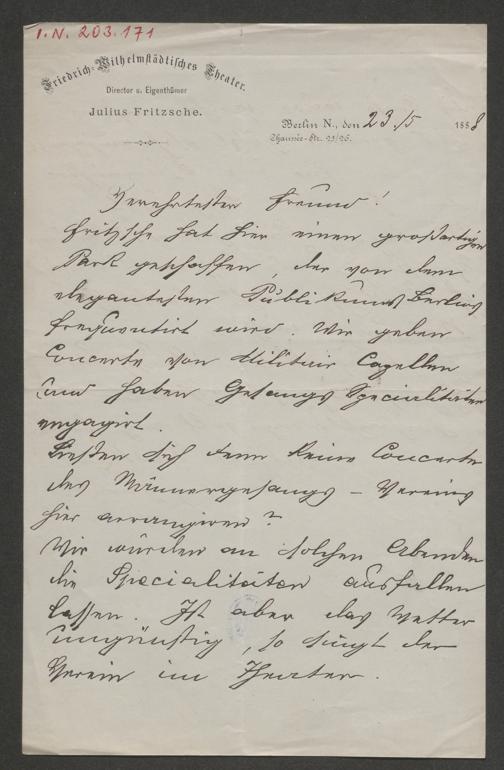 I.N. 203.171
Friedrich-Wilhelmstädtisches Theater.
Director u. Eigenthümer
Julius Fritzsche.
Berlin N., den 23./5 1888
Chaussée-Str. 25/26.
Verehrtester Freund!
Fritzsche hat hier einen großartigen
Park geschaffen, der von dem
elegantesten Publikum Berlins
frequentirt wird. Wir geben
Concerte von Militair Capellen
und haben Gesangs Specialitäten
engagirt.
Ließen sich denn keine Concerte
des Männergesangs-Vereins
hier arrangiren?
Wir würden an solchen Abenden
die Specialitäten ausfallen
lassen. Ist aber das Wetter
ungünstig, so singt der
Verein im Theater.